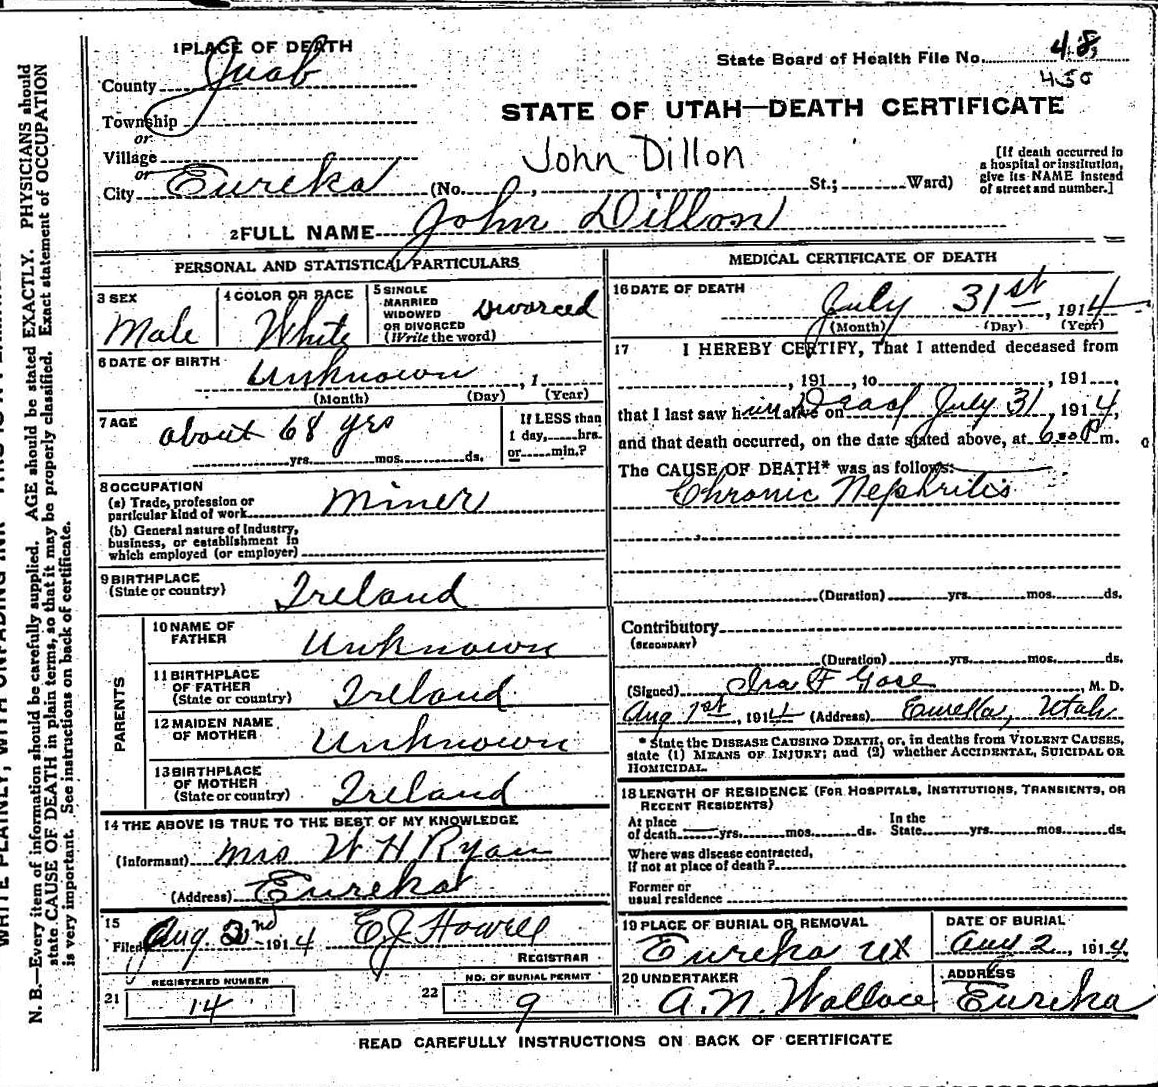 1 PLACE OF DEATH
County Juab
Township
or
Village
or
City Eureka (No. , St.; Ward)
State Board of Health File No. 48
450
STATE OF UTAH—DEATH CERTIFICATE
John Dillon
[If death occurred in
a hospital or institution,
give its NAME instead
of street and number.]
2 FULL NAME John Dillon
PERSONAL AND STATISTICAL PARTICULARS
3 SEX
Male
4 COLOR OR RACE
White
5 SINGLE
MARRIED
WIDOWED
OR DIVORCED
(Write the word)
Divorced
6 DATE OF BIRTH
Unknown , 1
(Month) (Day) (Year)
7 AGE
about 68 yrs
yrs. mos. ds.
If LESS than
1 day, hrs.
or min.?
8 OCCUPATION
(a) Trade, profession or
particular kind of work Miner
(b) General nature of Industry,
business, or establishment in
which employed (or employer)
9 BIRTHPLACE
(State or country) Ireland
PARENTS
10 NAME OF
FATHER Unknown
11 BIRTHPLACE
OF FATHER
(State or country) Ireland
12 MAIDEN NAME
OF MOTHER Unknown
13 BIRTHPLACE
OF MOTHER
(State or country) Ireland
14 THE ABOVE IS TRUE TO THE BEST OF MY KNOWLEDGE
(Informant) Mrs W H Ryan
(Address) Eureka
15
Filed Aug 2nd 1914 E J Howell
REGISTRAR
21 REGISTERED NUMBER
14
22 NO. OF BURIAL PERMIT
9
MEDICAL CERTIFICATE OF DEATH
16 DATE OF DEATH
July 31st , 1914
(Month) (Day) (Year)
17 I HEREBY CERTIFY, That I attended deceased from
, 191 , to , 191 ,
that I last saw him alive on Dead July 31 1914,
and that death occurred, on the date stated above, at m.
The CAUSE OF DEATH* was as follows:
Chronic Nephritis
(Duration) yrs. mos. ds.
Contributory
(SECONDARY)
(Duration) yrs. mos. ds.
(Signed) Ira F , M. D.
Aug 1st , 1914 (Address) Eureka, Utah
* State the DISEASE CAUSING DEATH, or, in deaths from VIOLENT CAUSES,
state (1) MEANS OF INJURY; and (2) whether ACCIDENTAL, SUICIDAL OR
HOMICIDAL.
18 LENGTH OF RESIDENCE (FOR HOSPITALS, INSTITUTIONS, TRANSIENTS, OR
RECENT RESIDENTS)
At place
of death yrs. mos. ds.
In the
State yrs. mos. ds.
Where was disease contracted,
If not at place of death?
Former or
usual residence
19 PLACE OF BURIAL OR REMOVAL
Eureka Ut
DATE OF BURIAL
Aug 2 , 1914
20 UNDERTAKER
A. N. Wallace
ADDRESS
Eureka
READ CAREFULLY INSTRUCTIONS ON BACK OF CERTIFICATE
N. B.—Every item of information should be carefully supplied. AGE should be stated EXACTLY. PHYSICIANS should
state CAUSE OF DEATH in plain terms, so that it may be properly classified. Exact statement of OCCUPATION
is very important. See instructions on back of certificate.